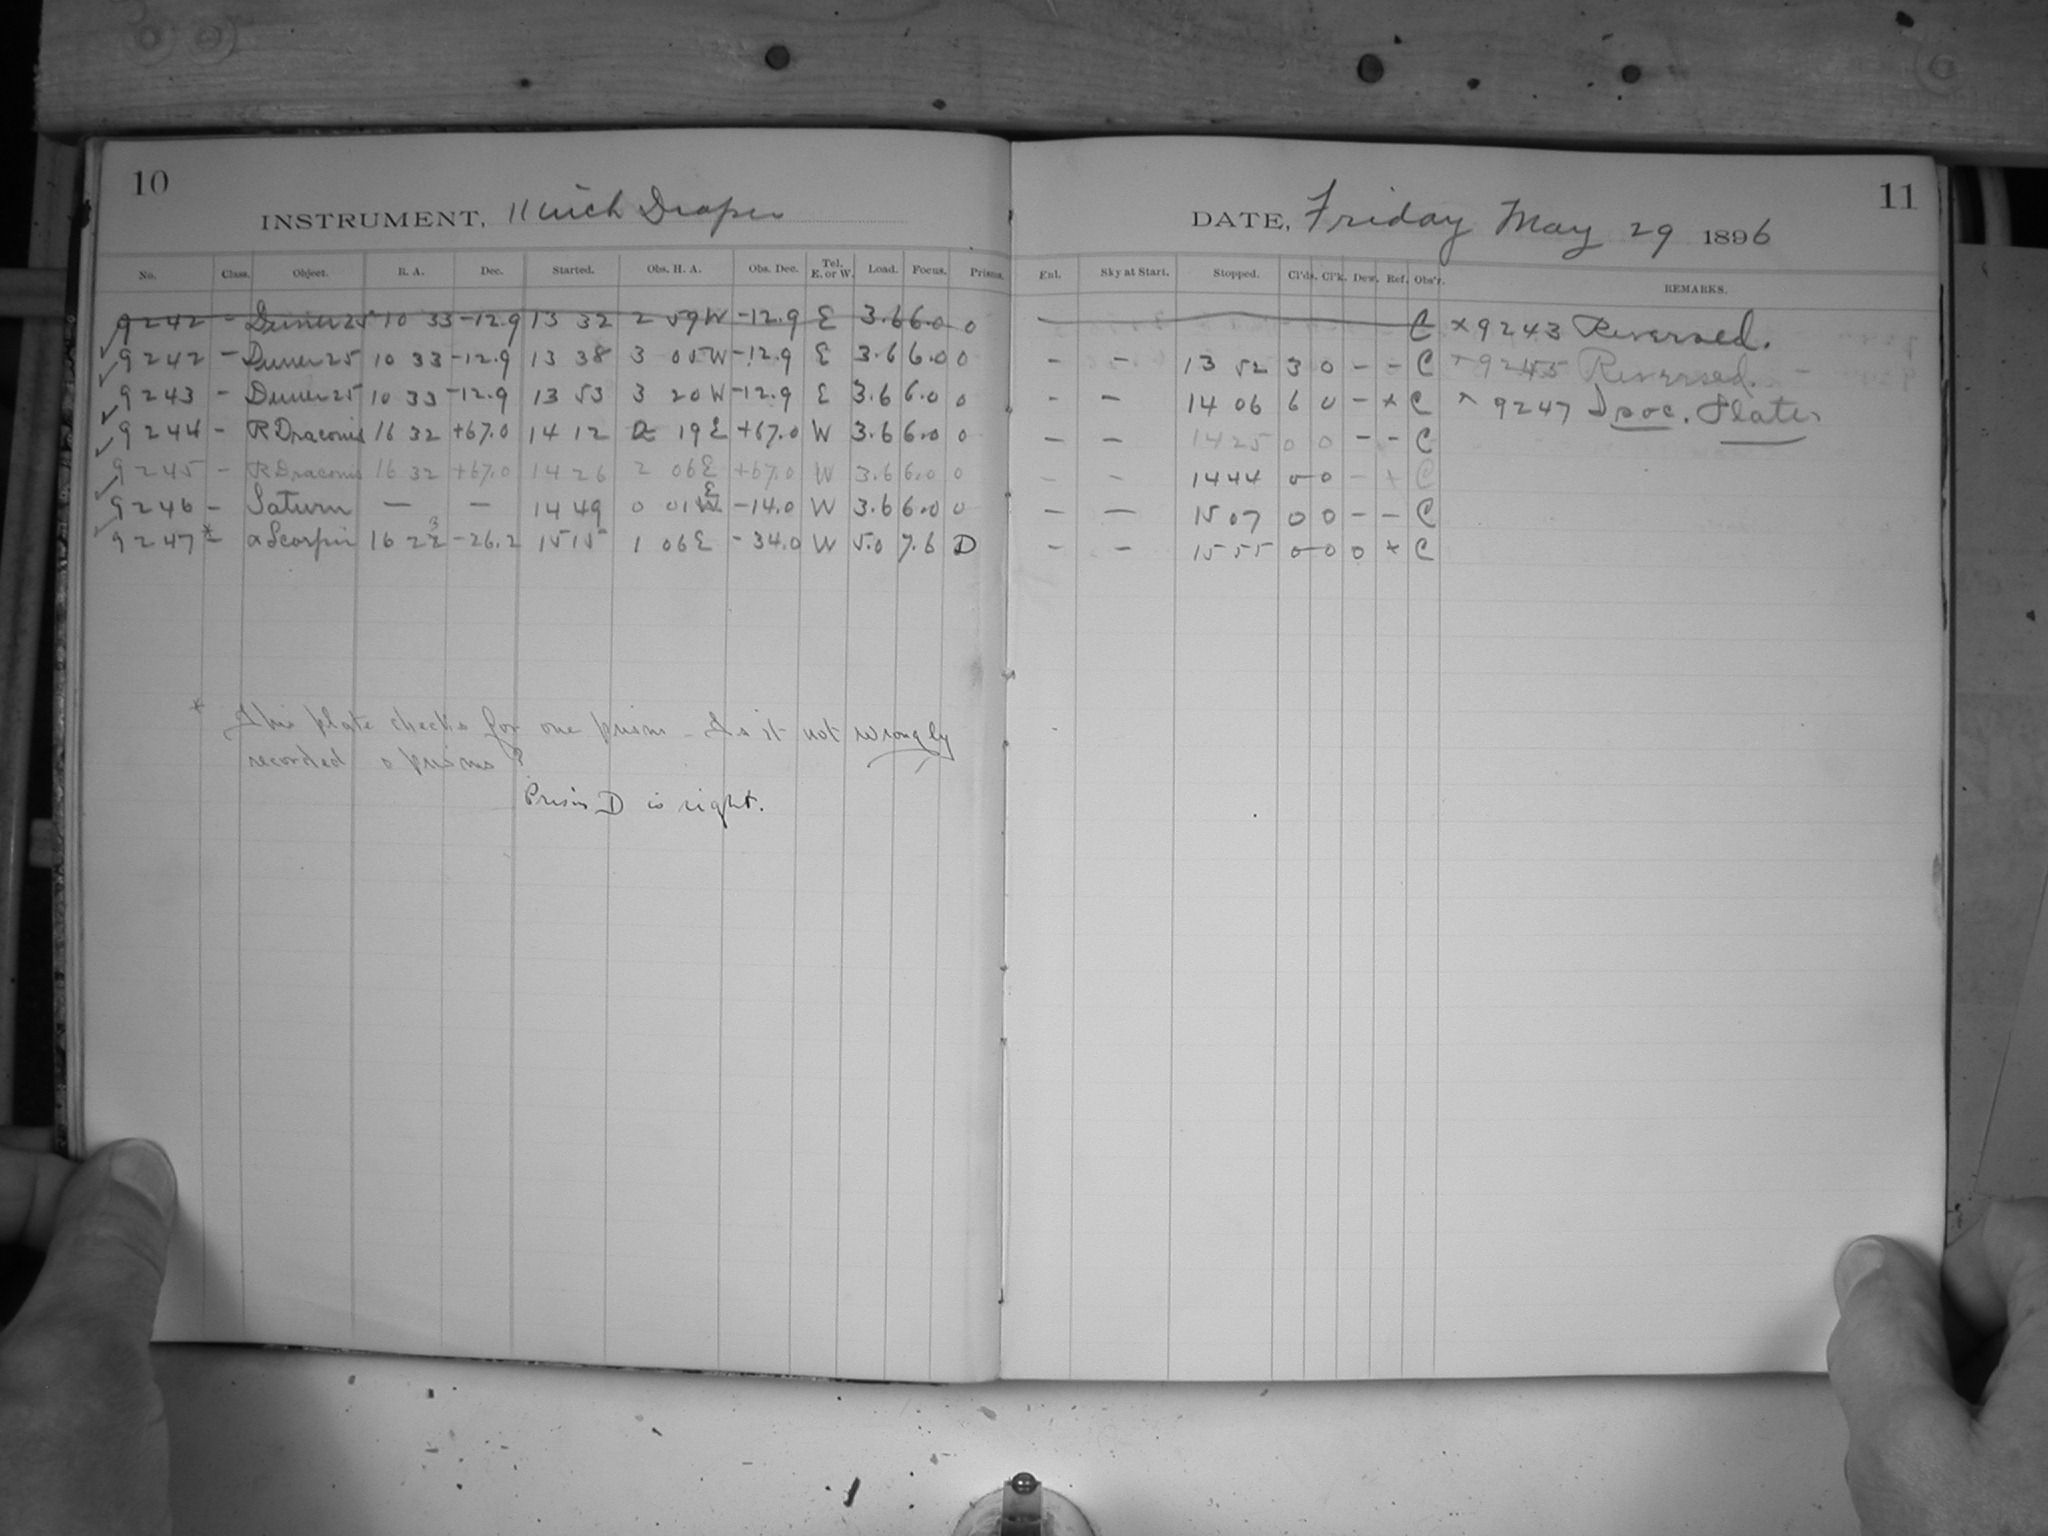 10
INSTRUMENT, 11 inch Draper
No. Class. Object. R. A. Dec. Started. Obs. H. A. Obs. Dec. Tel. E. or W. Load. Focus. Prisms.
9242 - Duner 25 10 33 -12.9 13 32 2 59 W -12.9 E 3.6 6.0 0
✓ 9242 - Duner 25 10 33 -12.9 13 38 3 05 W -12.9 E 3.6 6.0 0
✓ 9243 - Duner 25 10 33 -12.9 13 53 3 20 W -12.9 E 3.6 6.0 0
✓ 9244 - R Draconis 16 32 +67.0 14 12 2 19 E +67.0 W 3.6 6.0 0
✓ 9245 - R Draconis 16 32 +67.0 14 26 2 06 E +67.0 W 3.6 6.0 0
✓ 9246 - Saturn — — 14 49 0 01 W E -14.0 W 3.6 6.0 0
✓ 9247 * - α Scorpii 16 22 3 -26.2 15 15 1 06 E -34.0 W 5.0 7.6 D
* This plate checks for one prism - Is it not wrongly
recorded 0 prisms?
Prism D is right.
11
DATE, Friday May 29 1896
Enl. Sky at Start. Stopped. Cl'ds. Cl'k. Dew. Ref. Obs'r. REMARKS.
C × 9243 Reversed.
- - 13 52 3 0 - - C × 9245 Reversed.
- - 14 06 6 0 - × C × 9247 Spec. Plates
- - 14 25 0 0 - - C
- - 14 44 0 0 - × C
- - 15 07 0 0 - - C
- - 15 55 0 0 0 × C